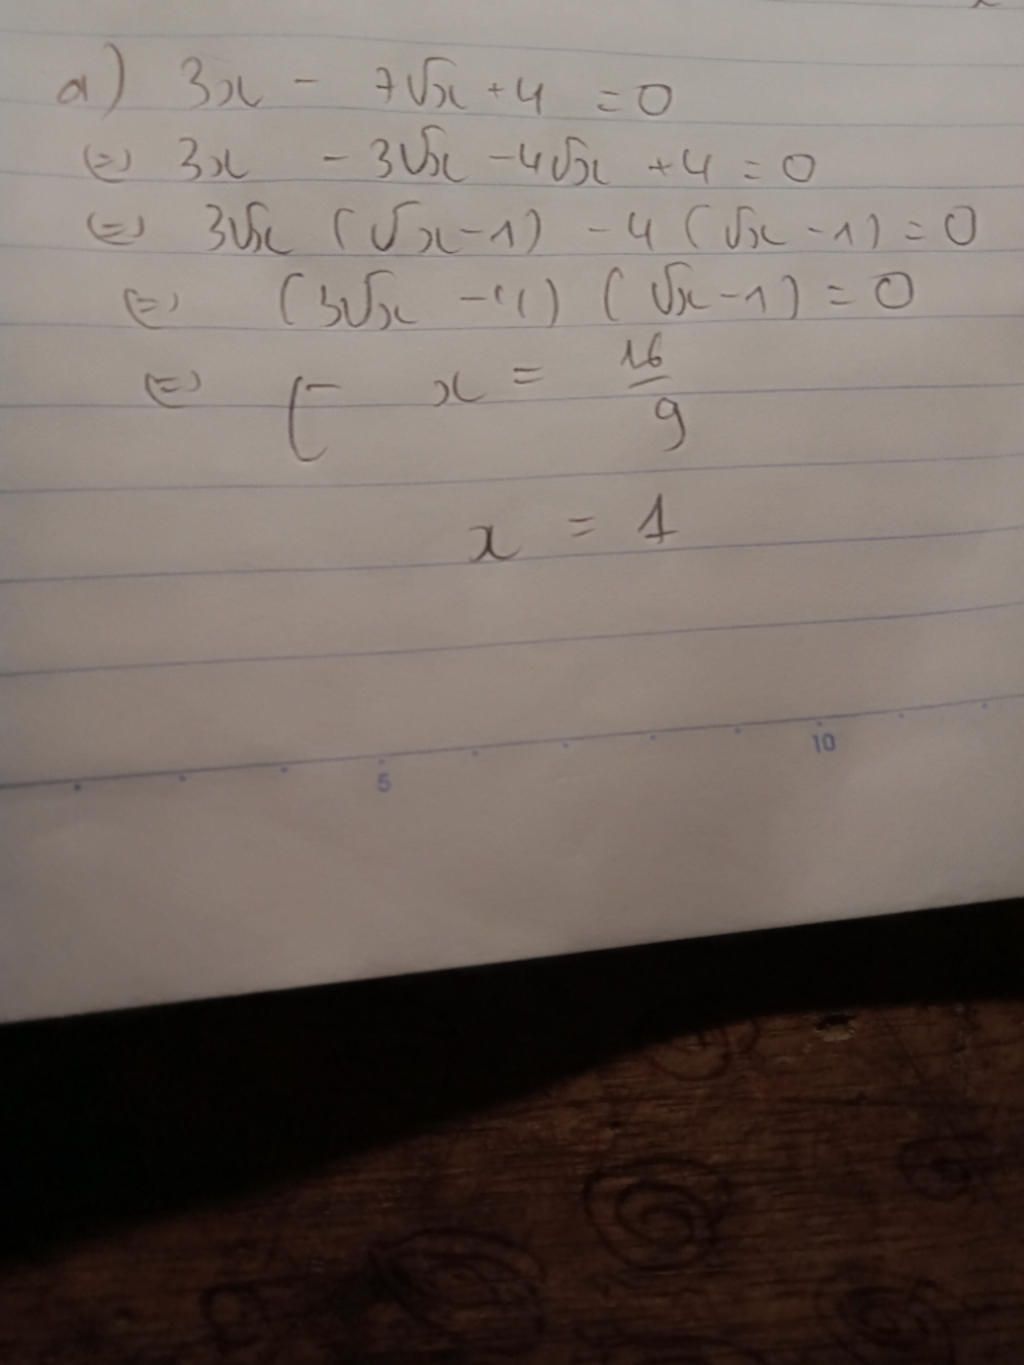 a) 3x - 7√x + 4 = 0
(=) 3x - 3√x - 4√x + 4 = 0
(=) 3√x (√x - 1) - 4 (√x - 1) = 0
(=) (3√x - 4) (√x - 1) = 0
(=) [ x = 16/9
x = 1
5 10